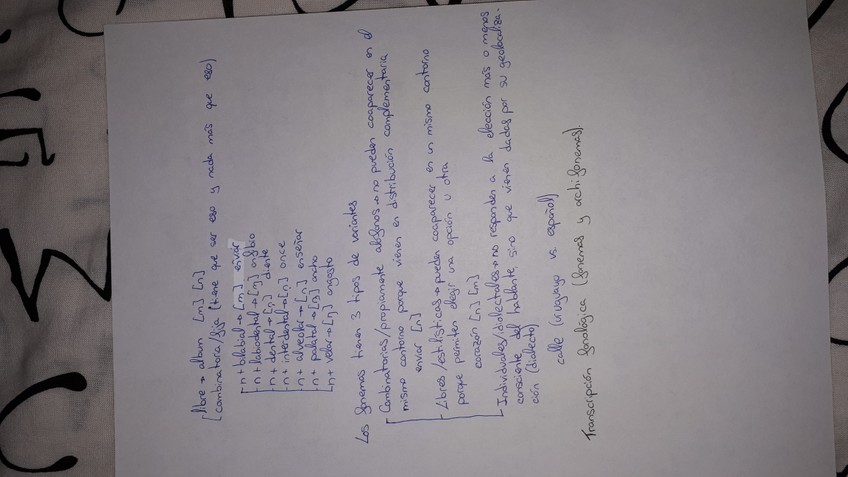 libre → album [m] [n]
combinatoria/fija (tiene que ser eso y nada más que eso)
n + bilabial → [m] enviar
n + labiodental → [ɱ]
n + dental → [n̪] diente
n + interdental → [n̟] once
n + alveolar → [n] enseñar
n + palatal → [ɲ] ancho
n + velar → [ŋ] angosto
Los fonemas tienen 3 tipos de variantes
- Combinatorias/propiamente alófonos → no pueden coaparecer en el
mismo contorno porque vienen en distribución complementaria
enviar [n]
- Libres/estilísticas → pueden coaparecer en un mismo contorno
porque permiten elegir una opción u otra
corazón [n] [n]
- Individuales/dialectales → no responden a la elección más o menos
consciente del hablante, sino que vienen dadas por su geolocaliza-
ción (dialecto)
calle (uruguayo vs. español)
Transcripción fonológica (fonemas y archifonemas).